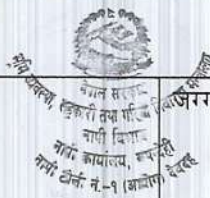 नेपाल सरकार
भूमि व्यवस्था, सहकारी तथा गरिबी निवारण मन्त्रालय
नापी विभाग
नापी कार्यालय, रूपन्देही
नापी टोली नं.-१ (आयोग) देवदह